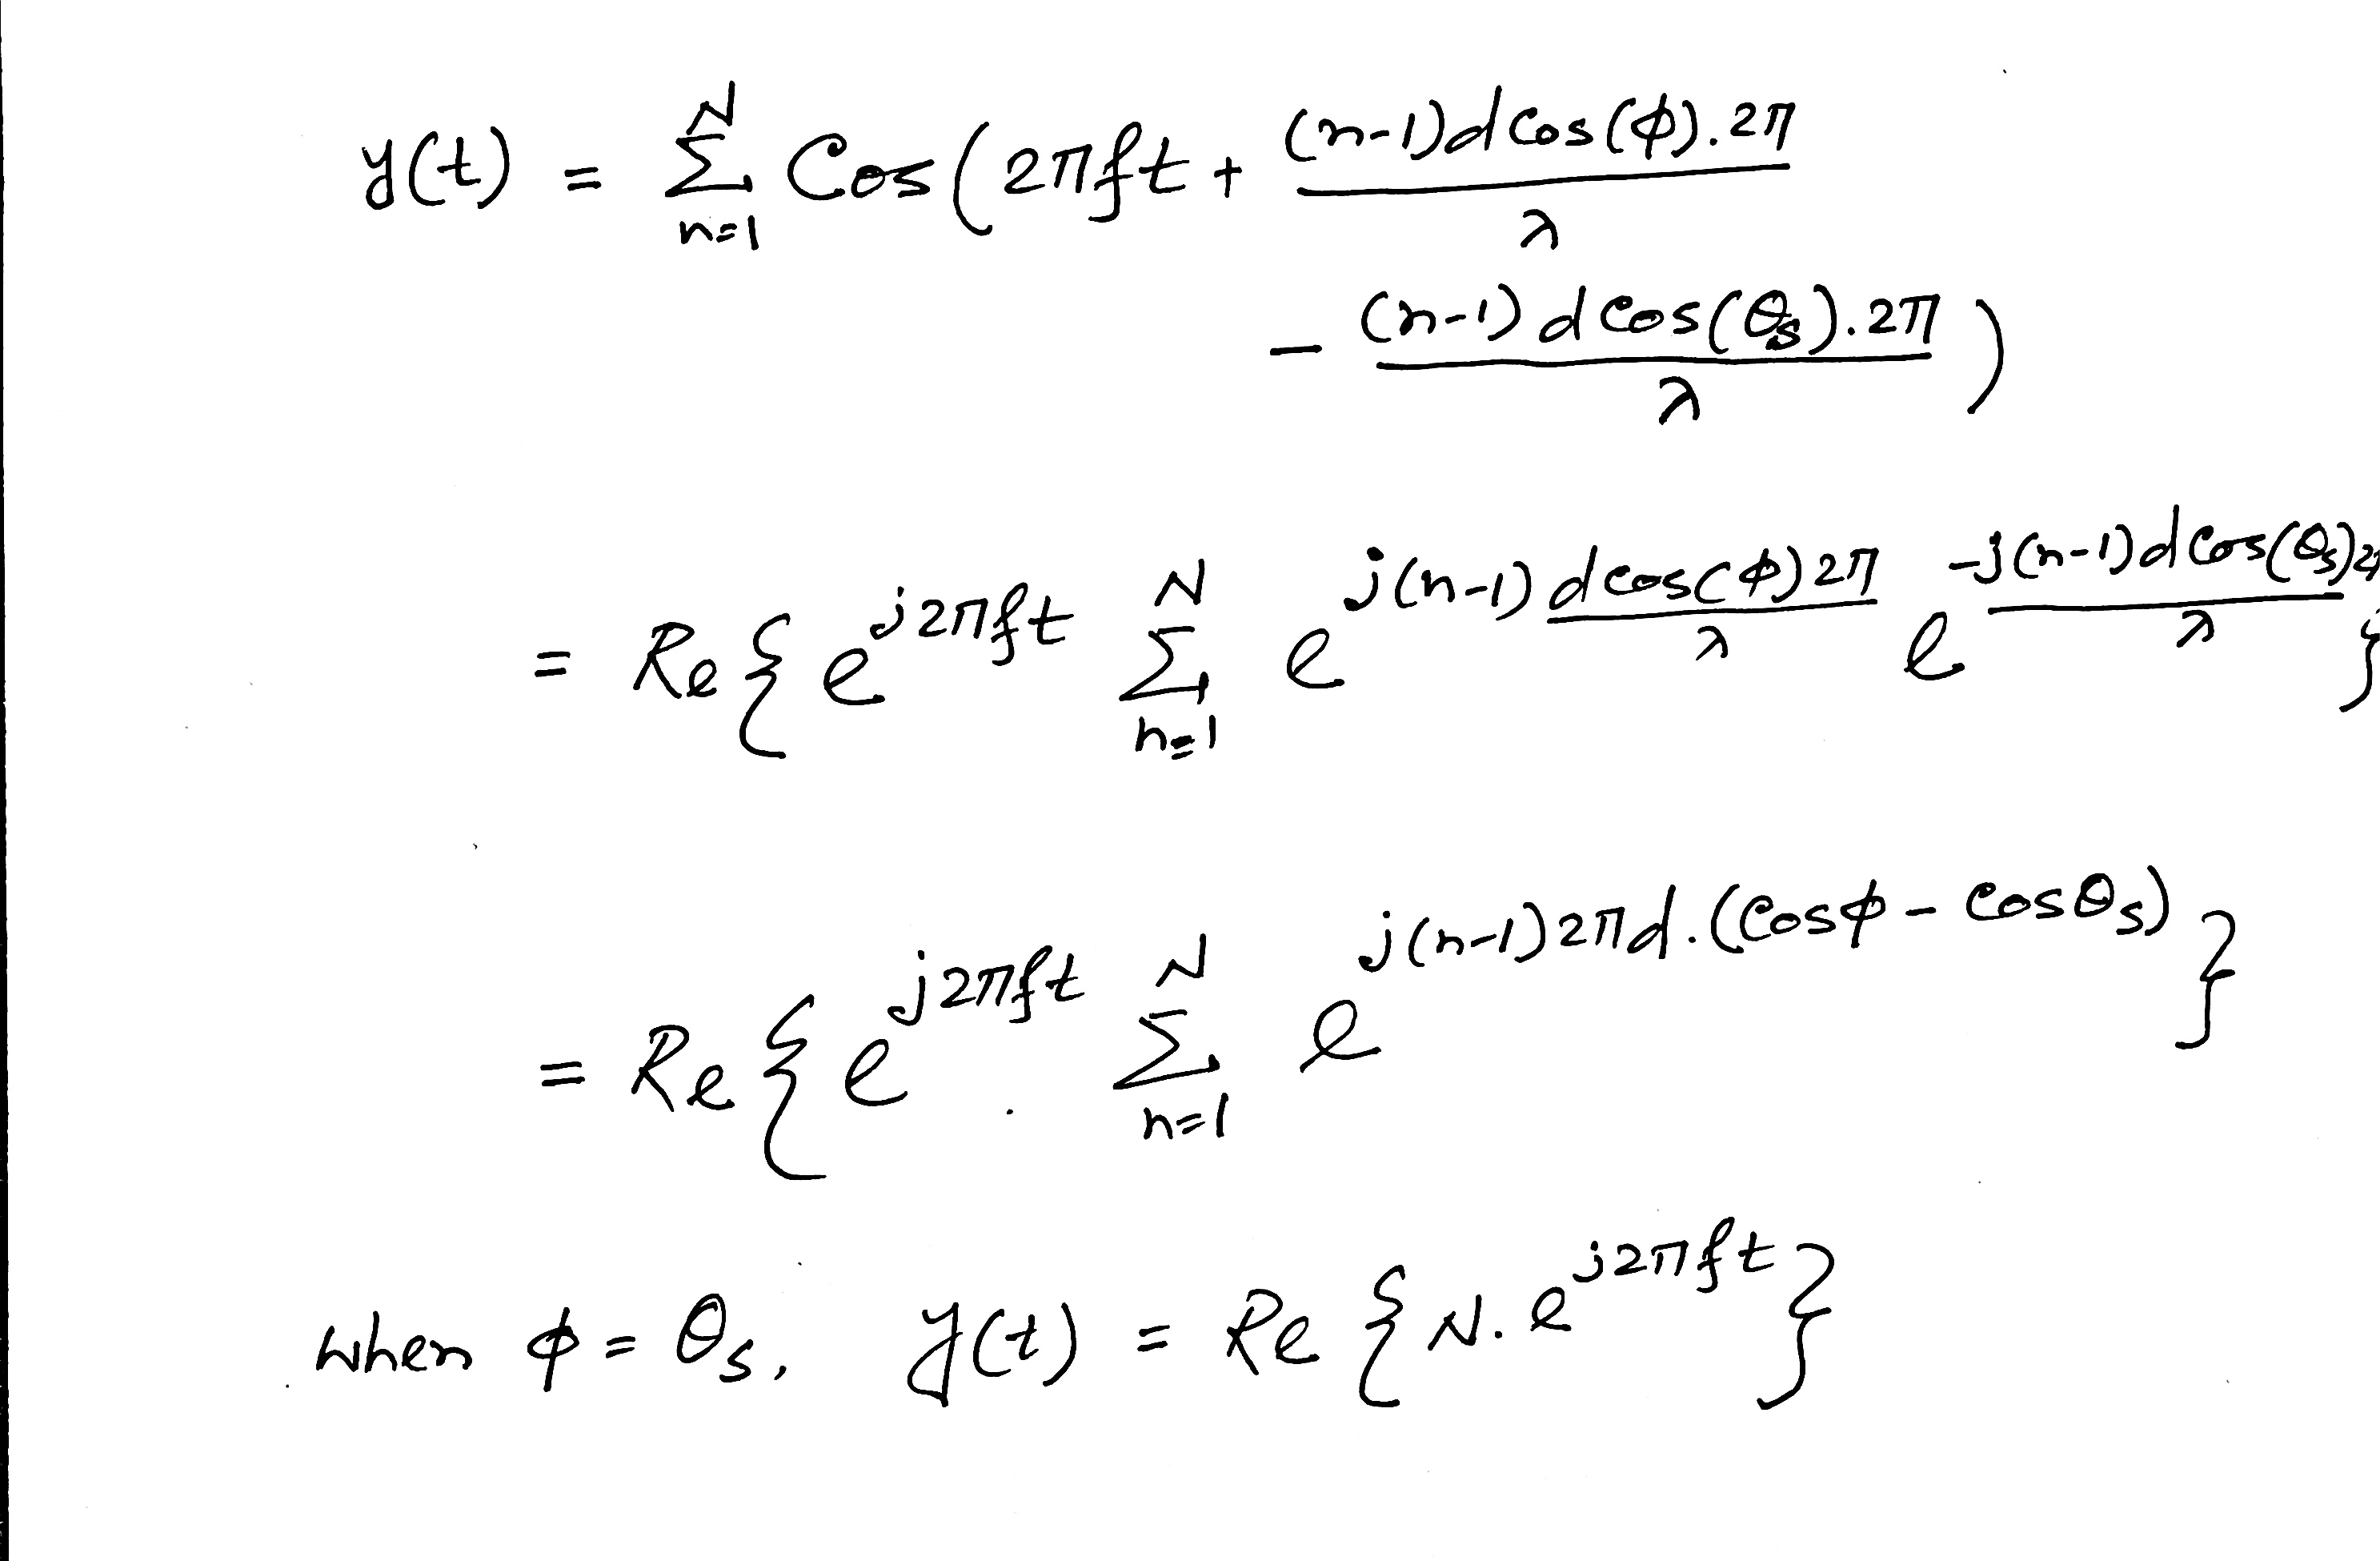 y(t) = Σ_{n=1}^{N} Cos(2πft + \frac{(n-1)dCos(φ).2π}{λ}
- \frac{(n-1)dCos(θ_s).2π}{λ})
= Re{e^{j2πft} Σ_{n=1}^{N} e^{j(n-1)\frac{dcos(φ)2π}{λ}} e^{-j\frac{(n-1)dCos(θ_s)2}{λ}}}
= Re{e^{j2πft} Σ_{n=1}^{N} e^{j(n-1)2πd.(Cosφ-Cosθ_s)}}
when φ = θ_s, y(t) = Re{N.e^{j2πft}}